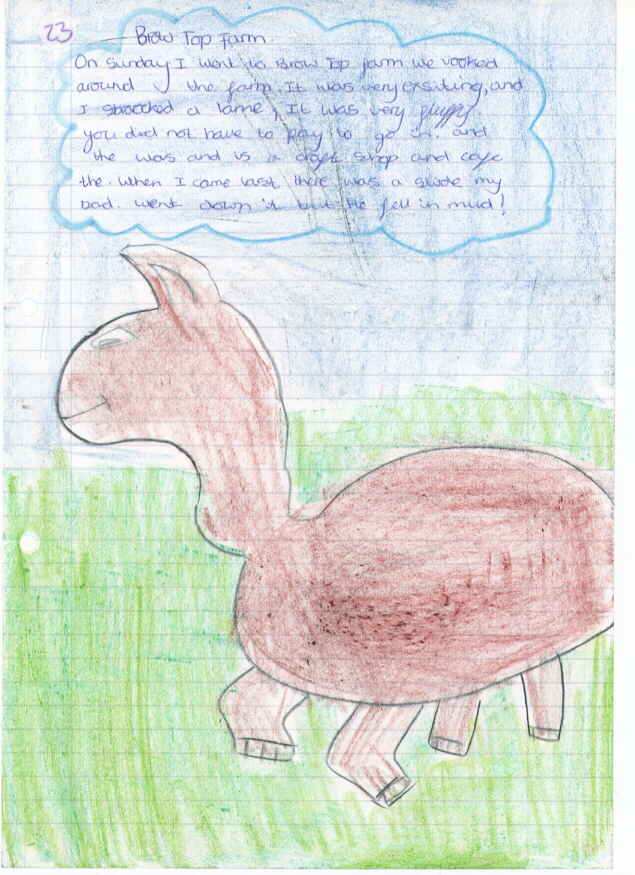 23 Brow Top Farm.
On Sunday I went to Brow Top farm we wolked
around the farm. It was very exsiting, and
I stroocked a lame, It was very fluffy
you did not have to pay to go in. and
the was and is a craft shop and cafe
the. When I came last there was a slide my
dad. went down it but He fell in mud!